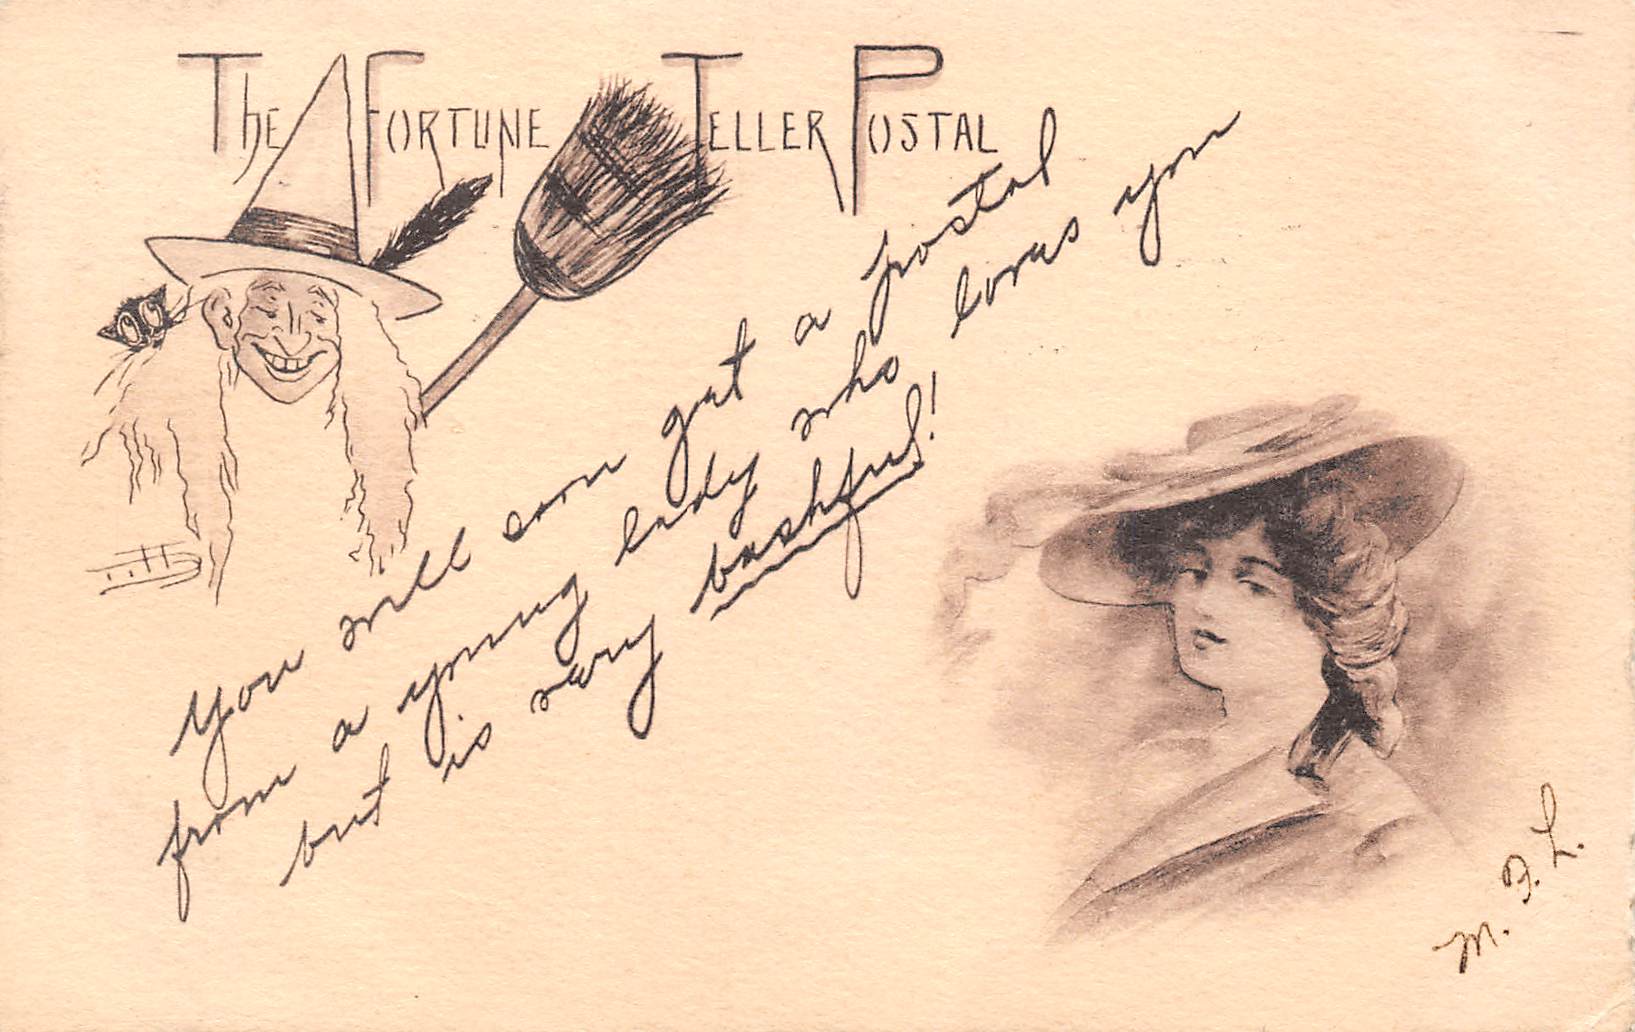 The Fortune Teller Postal
You will soon get a postal
from a young lady who loves you
but is very bashful!
M. F. L.